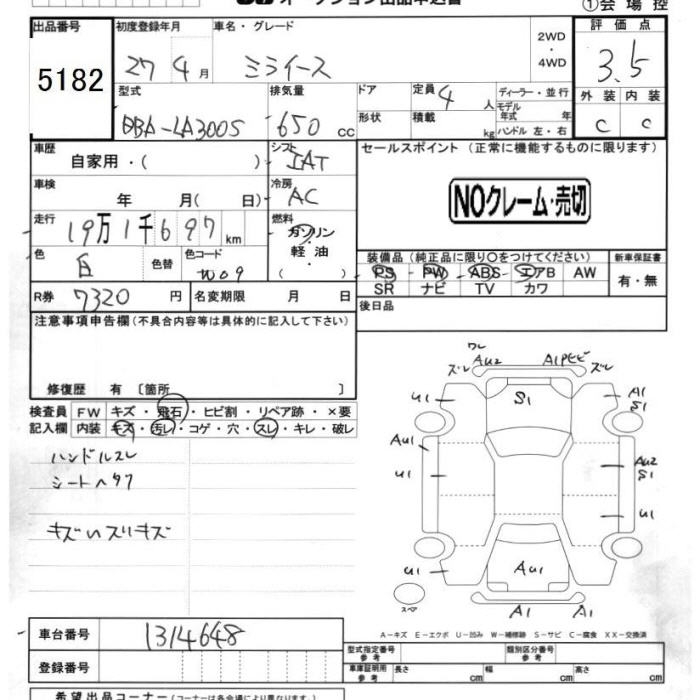 オークション出品申込書
①会場控
出品番号
5182
初度登録年月
27 4月
車名・グレード
ミライース
2WD・4WD
評価点
3.5
外装 内装
C C
型式
DBA-LA300S
排気量
650 cc
ドア
形状
定員 4 人
積載 kg
ディーラー・並行
モデル年式 年
ハンドル 左・右
車歴
自家用・( )
シフト
IAT
セールスポイント (正常に機能するものに限ります)
NOクレーム・売切
車検
年 月(日)
冷房
AC
走行
19万1千697km
燃料
ガソリン・軽油・( )
色
白
色替
色コード
W09
装備品 (純正品に限り○をつけてください)
PS PW ABS エアB AW
SR ナビ TV カワ
新車保証書
有・無
R券 7320 円
名変期限 月 日
後日品
注意事項申告欄 (不具合内容等は具体的に記入して下さい)
修復歴 有 〔箇所 〕
検査員記入欄
FW キズ・飛石・ヒビ割・リペア跡・×要
内装 キズ・汚レ・コゲ・穴・スレ・キレ・破レ
ハンドルスレ
シートヘタリ
キズハスリキズ
ワレ
ズレ AU2 A1Pヒビ ズレ
U1 S1 A1 S1
AU1 AU2 S1
U1 U1
U1 AU1 U1
スペア A1 A1
A-キズ E-エクボ U-凹み W-補修跡 S-サビ C-腐食 XX-交換済
車台番号 1314648
登録番号
型式指定番号 参考
類別区分番号 参考
車庫証明用 参考 長さ cm 幅 cm 高さ cm
希望出品コーナー